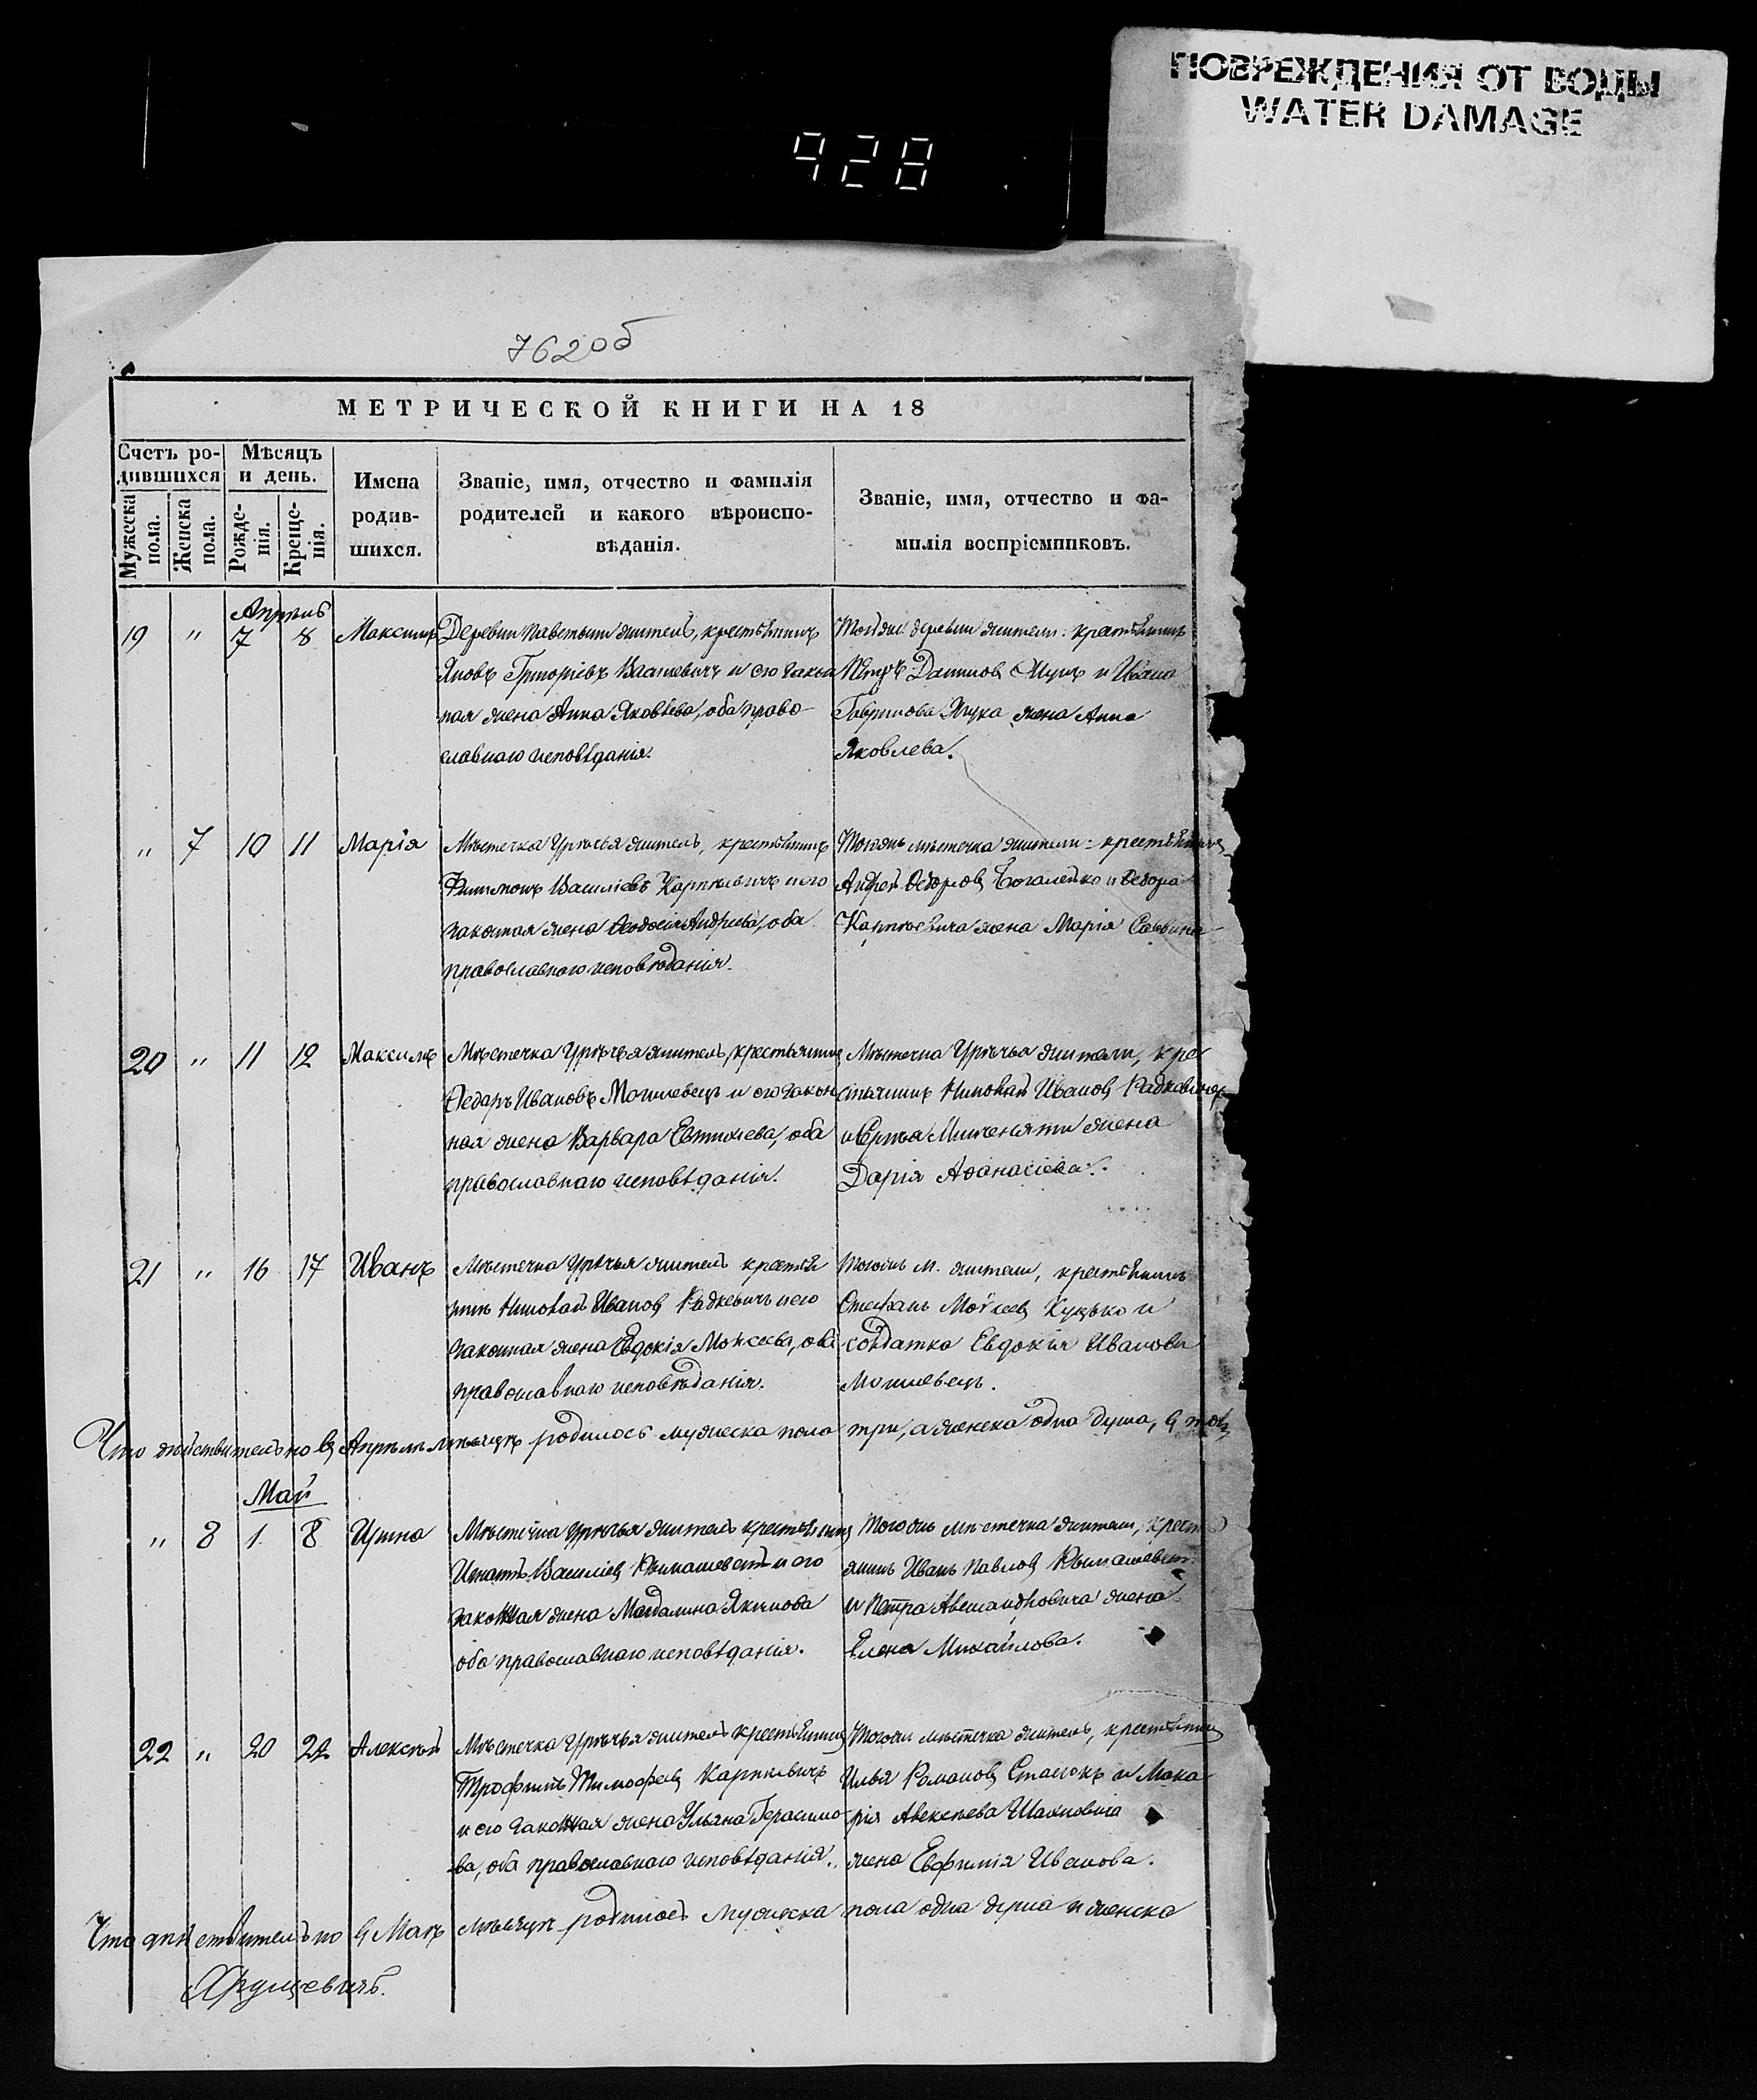 ПОВРЕЖДЕНИЯ ОТ ВОДЫ
WATER DAMAGE
928
762об
МЕТРИЧЕСКОЙ КНИГИ НА 18
Счетъ ро-
дившихся
Мѣсяцъ
и день.
Мужеска
пола.
Женска
пола.
Рожде-
нія.
Креще-
нія.
Имена
родив-
шихся.
Званіе, имя, отчество и фамилія
родителей и какого вѣроиспо-
вѣданія.
Званіе, имя, отчество и фа-
милія воспріемниковъ.
Апрѣль
19 " 7 8 Максимъ
Деревни житель, крестьянинъ
Яковъ Григоріевъ И его закон
ная жена Анна Яковлева, оба право-
славнаго исповѣданія.
Той же деревни жители: крестьянинъ
Петръ и Ивана
жена Анна
Яковлева.
" 7 10 11 Марія
Мѣстечка Урѣчья житель, крестьянинъ
Филимонъ Василіевъ Карпіевичъ и его
законная жена Ѳеодосія Андреева, оба
православнаго исповѣданія.
Тогожъ мѣстечка жители: крестьянинъ
Андрей Ѳедоровъ и Ѳедора
Карпіевича жена Марія Саввина
20 " 11 12 Максимъ
Мѣстечка Урѣчья житель, крестьянинъ
Ѳедоръ Ивановъ Могилевецъ и его закон
ная жена Варвара Евтихіева, оба
православнаго исповѣданія.
Мѣстечка Урѣчья жители, кре
стьянинъ Николай Ивановъ Радкевичъ
и жена
Дарія Аѳанасіева.
21 " 16 17 Иванъ
Мѣстечка Урѣчья житель крестья
нинъ Николай Ивановъ Радкевичъ и его
законная жена Евдокія Моисеева, оба
православнаго исповѣданія.
Тогожъ м. жители, крестьянинъ
Стефанъ Моисеевъ Куцько и
солдатка Евдокія Иванова
Могилевецъ.
Что дѣйствительно въ Апрѣлѣ мѣсяцѣ родилось мужеска пола три, а женска одна душа, въ томъ
Май
" 8 1 8 Ирина
Мѣстечка Урѣчья житель крестьянинъ
Игнатъ Василіевъ Рымашевскій и его
законная жена Магдалина Якимова
оба православнаго исповѣданія.
Тогожъ мѣстечка жители, крест
янинъ Иванъ Павловъ Рымашевск.
и Петра Александровича жена
Елена Михайлова.
22 " 20 22 Алексѣй
Мѣстечка Урѣчья житель крестьянинъ
Трофимъ Тимофеевъ Карпіевичъ
и его законная жена Ульяна Герасимо-
ва, оба православнаго исповѣданія.
Тогожъ мѣстечка житель, крестьянинъ
Илья Романовъ Стасюкъ и Мака
рія Алексѣева Шахновича
жена Евфимія Иванова.
Что дѣйствительно въ Маѣ мѣсяцѣ родилось мужеска пола одна душа и женска
Хрущевичъ.